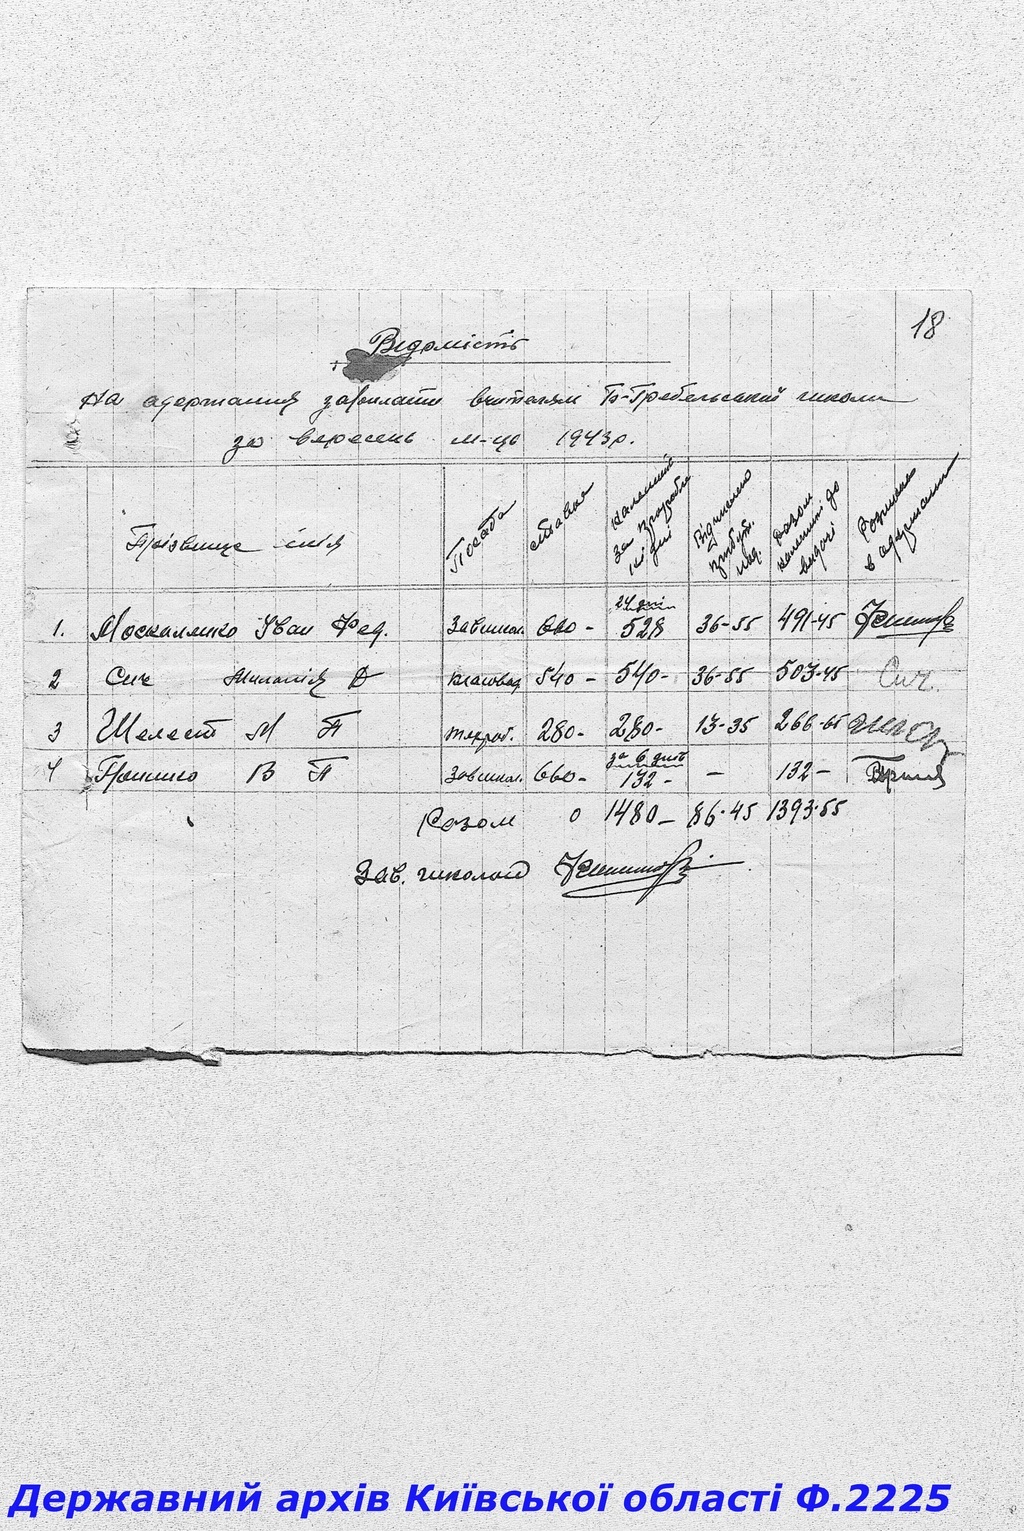 18
Відомість
на одержання зарплати вчителям Б-Гребельської школи
за вересень м-ць 1943р.
Прізвище імя Посада Ставка за дні Відчислено Разом до видачі Розписка в одержанні
1. Москаленко Іван Фед. Завшкол. 660- 24 дні 528 36-55 491-45
2 Сич Миланія Д 540- 540- 36-55 503-45 Сич.
3 Шелест М П техроб. 280- 280- 13-35 266-65
4 В П Завшкол. 660- за 6 днів 132- - 132-
Разом 0 1480- 86-45 1393-55
Зав. школою
Державний архів Київської області Ф.2225